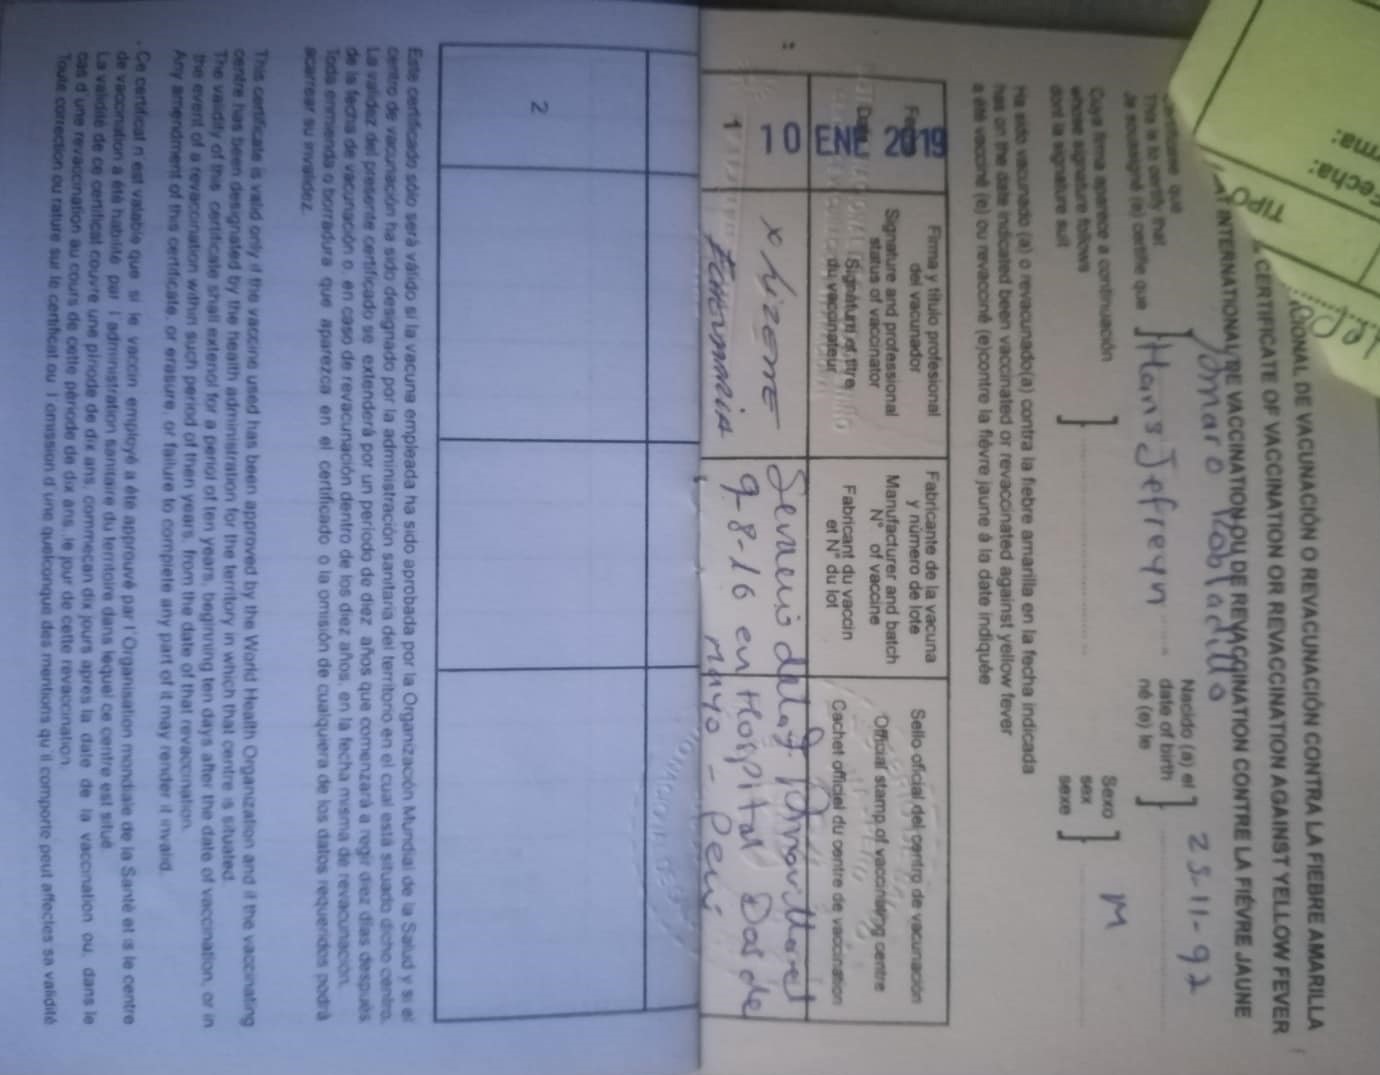 TIPO
Fecha:
CIONAL DE VACUNACIÓN O REVACUNACIÓN CONTRA LA FIEBRE AMARILLA
CERTIFICATE OF VACCINATION OR REVACCINATION AGAINST YELLOW FEVER
INTERNATIONAL DE VACCINATION OU DE REVACCINATION CONTRE LA FIÉVRE JAUNE
que
This is to certify that
Je soussigné (e) certifie que
Hans Jefreyn
Nacido (a) el
date of birth
né (e) le
23-11-92
Cuya firma aparece a continuación
whose signature follows
dont la signature suit
Sexo
sex
sexe
M
Ha sido vacunado (a) o revacunado(a) contra la fiebre amarilla en la fecha indicada
has on the date indicated been vaccinated or revaccinated against yellow fever
a été vacciné (e) ou revacciné (e)contre la fièvre jaune à la date indiquée
Firma y título profesional
del vacunador
Signature and professional
status of vaccinator
Signature et titre
du vaccinateur
Fabricante de la vacuna
y número de lote
Manufacturer and batch
N° of vaccine
Fabricant du vaccin
et N° du lot
Sello oficial del centro de vacunación
Official stamp of vaccinating centre
Cachet officiel du centre de vaccination
1
10 ENE 2019
9-8-16 en Hospital Dos de
mayo - Perú
2
Este certificado sólo será válido si la vacuna empleada ha sido aprobada por la Organización Mundial de la Salud y si el
centro de vacunación ha sido designado por la administración sanitaria del territorio en el cual está situado dicho centro.
La validez del presente certificado se extenderá por un período de diez años que comenzará a regir diez días después
de la fecha de vacunación o en caso de revacunación dentro de los diez años, en la fecha misma de revacunación.
Toda enmienda o borradura que aparezca en el certificado o la omisión de cualquiera de los datos requeridos podrá
acarrear su invalidez.
This certificate is valid only if the vaccine used has been approved by the World Health Organization and if the vaccinating
centre has been designated by the health administration for the territory in which that centre is situated.
The validity of this certificate shall extenol for a periol of ten years, beginning ten days after the date of vaccination, or in
the event of a revaccination within such period of then years, from the date of that revaccination.
Any amendment of this certificate, or erasure, or failure to complete any part of it may render it invalid.
Ce certificat n est valable que si le vaccin employé a éte approuvé par l'Organisation mondiale de la Santé et si le centre
de vaccination a été habilité par l administration sanitaire du territoire dans lequel ce centre est situé.
La validité de ce certificat couvre une période de dix ans, començan dix jours apres la date de la vaccination ou, dans le
cas d une revaccination au cours de cette période de dix ans, le jour de cette révaccination.
Toute correction ou rature sur le certificat ou l omission d une quelconque des mentions qu il comporte peut affectes sa validité